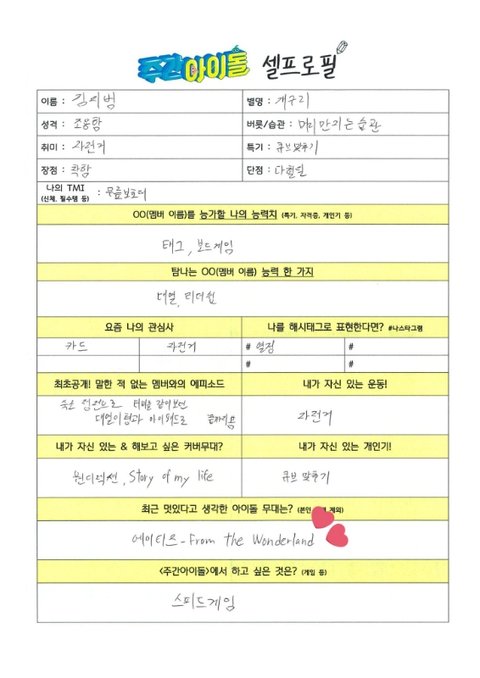 주간아이돌 셀프로필
이름 : 김지범
별명 : 개구리
성격 : 조용함
버릇/습관 : 머리 만지는 습관
취미 : 자전거
특기 : 큐브맞추기
장점 : 착함
단점 : 다혈질
나의 TMI
(신체, 필수템 등) : 무릎보호대
OO(멤버 이름)를 능가할 나의 능력치 (특기, 자격증, 개인기 등)
태그, 보드게임
탐나는 OO(멤버 이름) 능력 한 가지
대열, 리더쉽
요즘 나의 관심사
나를 해시태그로 표현한다면? #나스타그램
카드
자전거
# 열정
#
#
#
최초공개! 말한 적 없는 멤버와의 에피소드
내가 자신 있는 운동!
대열이형과
자전거
내가 자신 있는 & 해보고 싶은 커버무대?
내가 자신 있는 개인기!
원디렉션, Story of my life
큐브 맞추기
최근 멋있다고 생각한 아이돌 무대는? (본인 제외)
에이티즈 - From the Wonderland
<주간아이돌>에서 하고 싶은 것은? (게임 등)
스피드게임